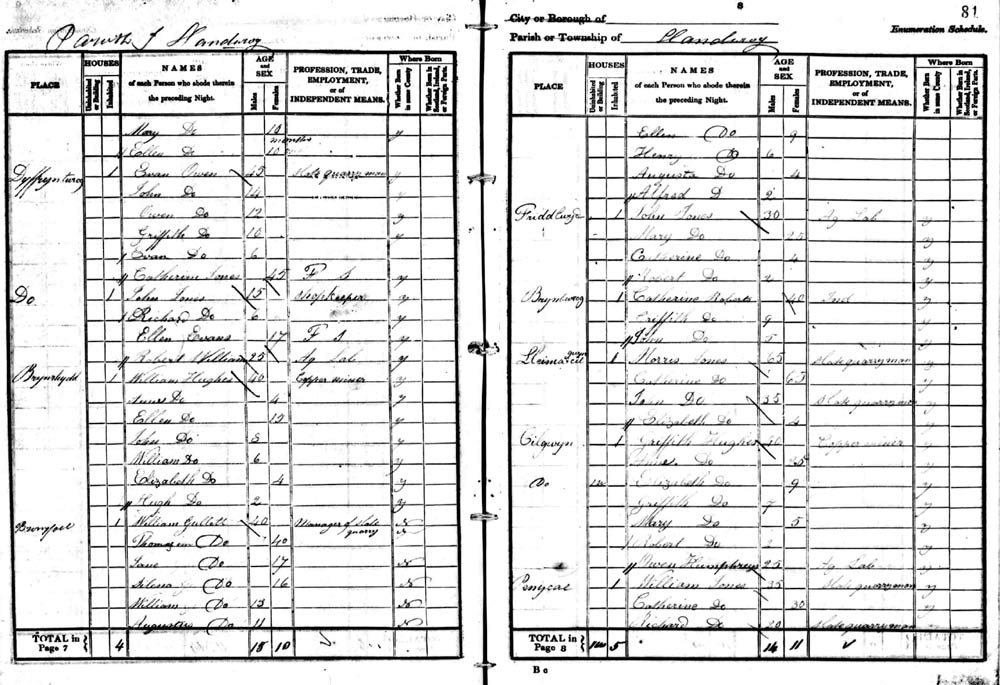 Parish of Llandwrog
PLACE
HOUSES
Uninhabited or Building
Inhabited
NAMES
of each Person who abode therein
the preceding Night.
AGE
and
SEX
Males
Females
PROFESSION, TRADE,
EMPLOYMENT,
or of
INDEPENDENT MEANS.
Where Born
Whether Born in same County
Whether Born in Scotland, Ireland, or Foreign Parts.
Mary Do y
Ellen Do 10 months
1 Evan Owen 45 Slate quarryman y
John Do 14
Owen Do 12 y
Griffith Do 10 y
Evan Do 6
Catherine Jones 45 F S y
Do 1 John Jones 15 Shopkeeper y
Richard Do 6 y
Ellen Evans 17 F S y
Robert William 25 Ag Lab y
1 William Hughes 40 Copper miner y
Do 4
Ellen Do 12 y
John Do 8 y
William Do 6 y
Elizabeth Do 4 y
Hugh Do 2 y
1 William Gullett 40 Manager of slate quarry N
Do 40
Jane Do 17 N
Selena Do 16 N
William Do 13 N
Augustus Do 11 N
TOTAL in Page 7 4 18 10
8
81
City or Borough of
Enumeration Schedule.
Parish or Township of Llandwrog
PLACE
HOUSES
Uninhabited or Building
Inhabited
NAMES
of each Person who abode therein
the preceding Night.
AGE
and
SEX
Males
Females
PROFESSION, TRADE,
EMPLOYMENT,
or of
INDEPENDENT MEANS.
Where Born
Whether Born in same County
Whether Born in Scotland, Ireland, or Foreign Parts.
Ellen Do 9
Henry Do 6
Augusta Do 4
Alfred D 2
1 John Jones 30 Ag Lab y
Mary Do 25 y
Catherine Do 4 y
Robert Do 2 y
1 Catherine Roberts 40 Ind y
Griffith Do 9 y
John Do 5 y
1 Morris Jones 65 Slate quarryman y
Catherine Do 63 y
Do 35 Slate quarryman y
Elizabeth Do 4 y
Cilgwyn 1 Griffith Hughes Copper miner y
Do y
Do Elizabeth Do 9 y
Griffith Do 7 y
Mary Do 5 y
Robert Do y
Owen Humphreys 25 Ag Lab y
Penycae 1 William Jones 35 Slate quarryman y
Catherine Do 30
Richard Do 20 Slate quarryman
TOTAL in Page 8 5 14 11
B c